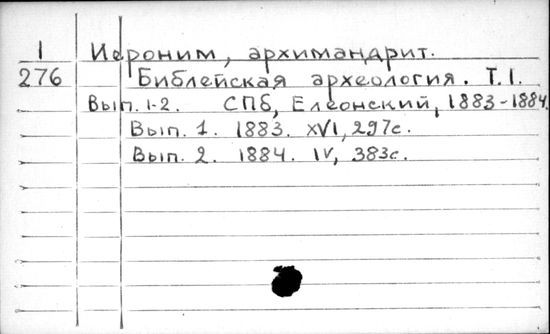 1 Иероним, архимандрит.
276 Библейская археология. Т. 1.
Вып. 1-2. СПб, Елеонский, 1883-1884.
Вып. 1. 1883. XVI, 297с.
Вып. 2. 1884. IV, 383с.